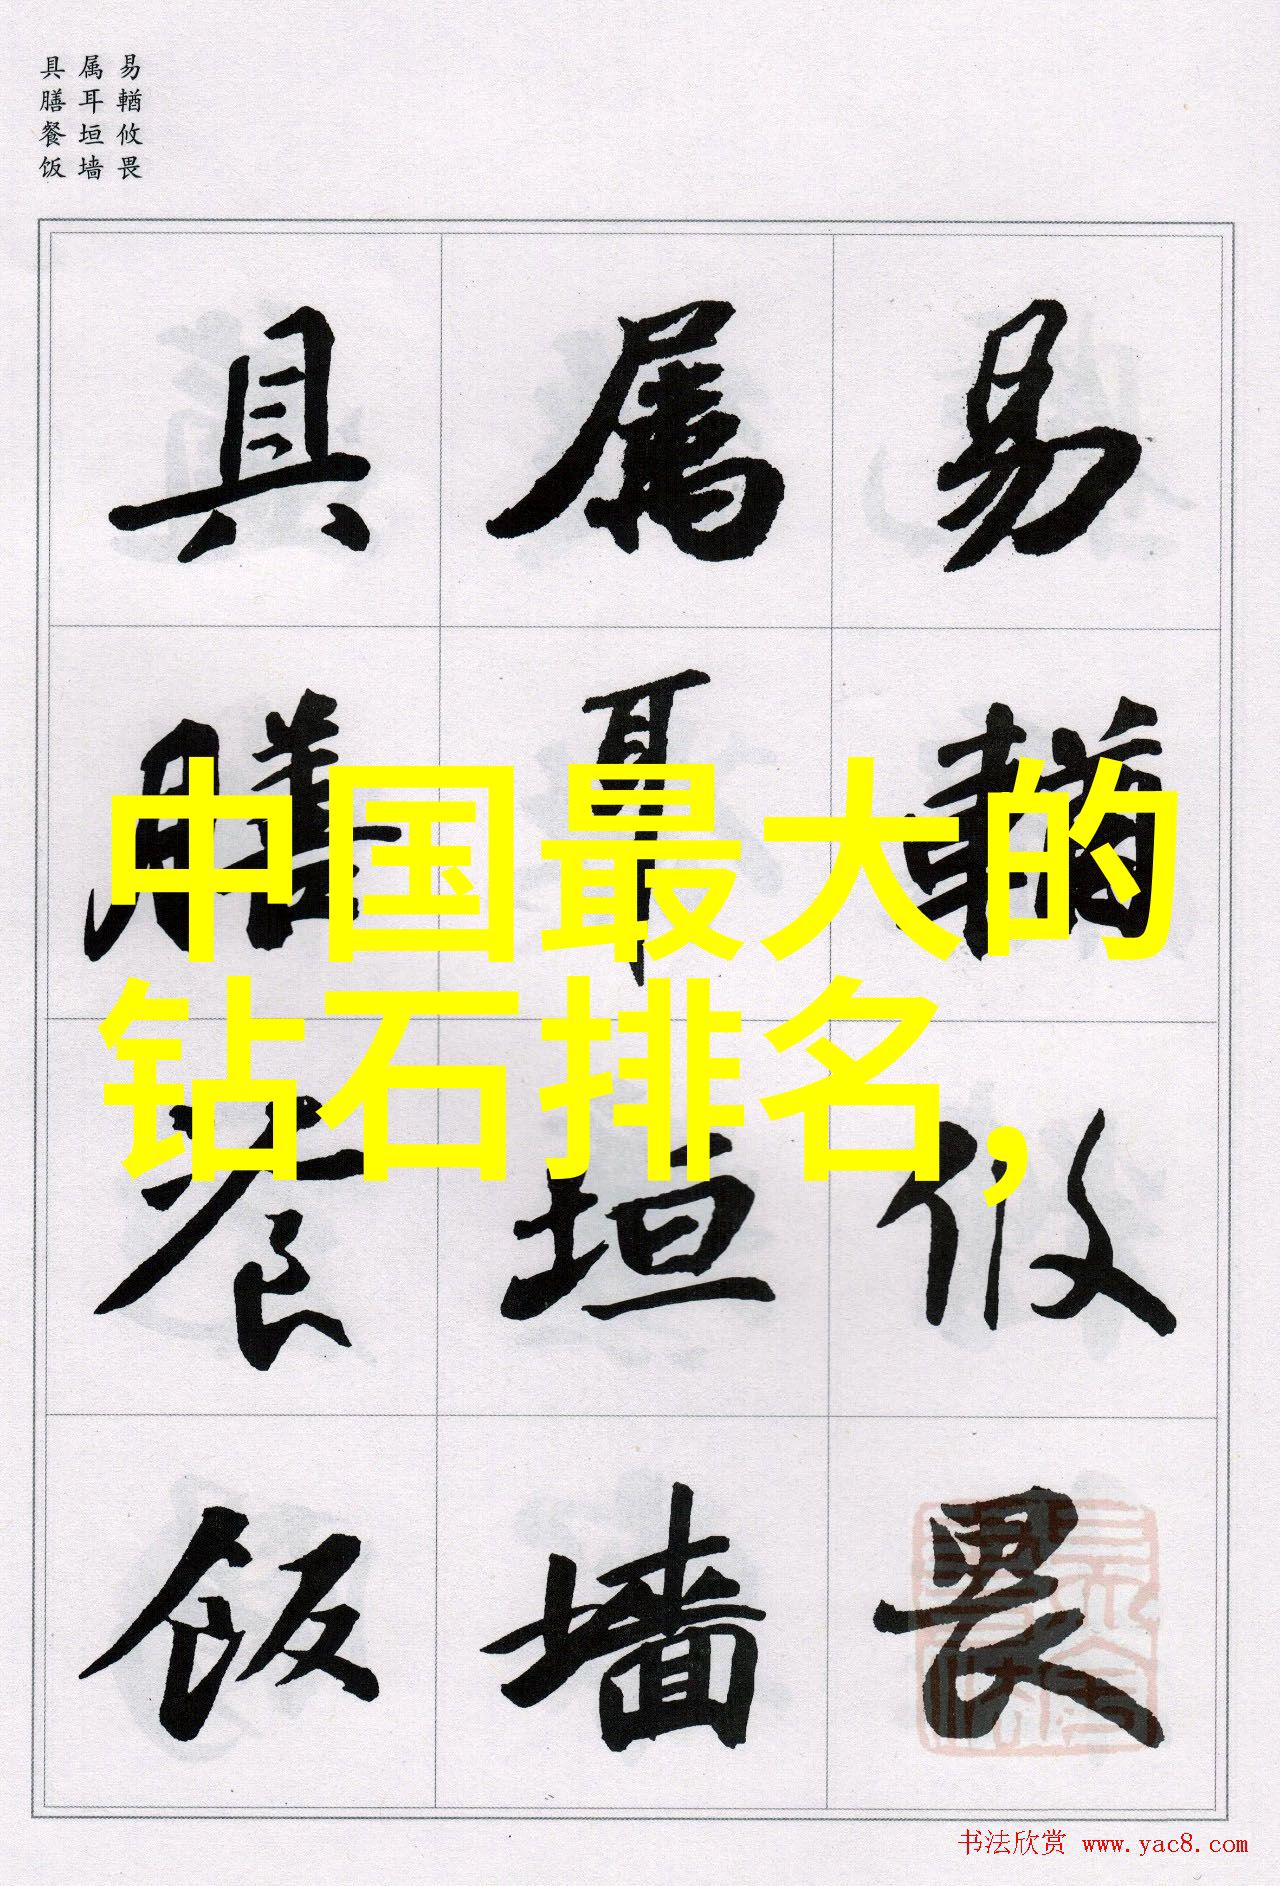 易輶攸畏
属耳垣墙
具膳餐饭
中国最大的
钻石排名,
易輶攸畏
属耳垣墙
具膳餐饭
书法欣赏 www.yac8.com